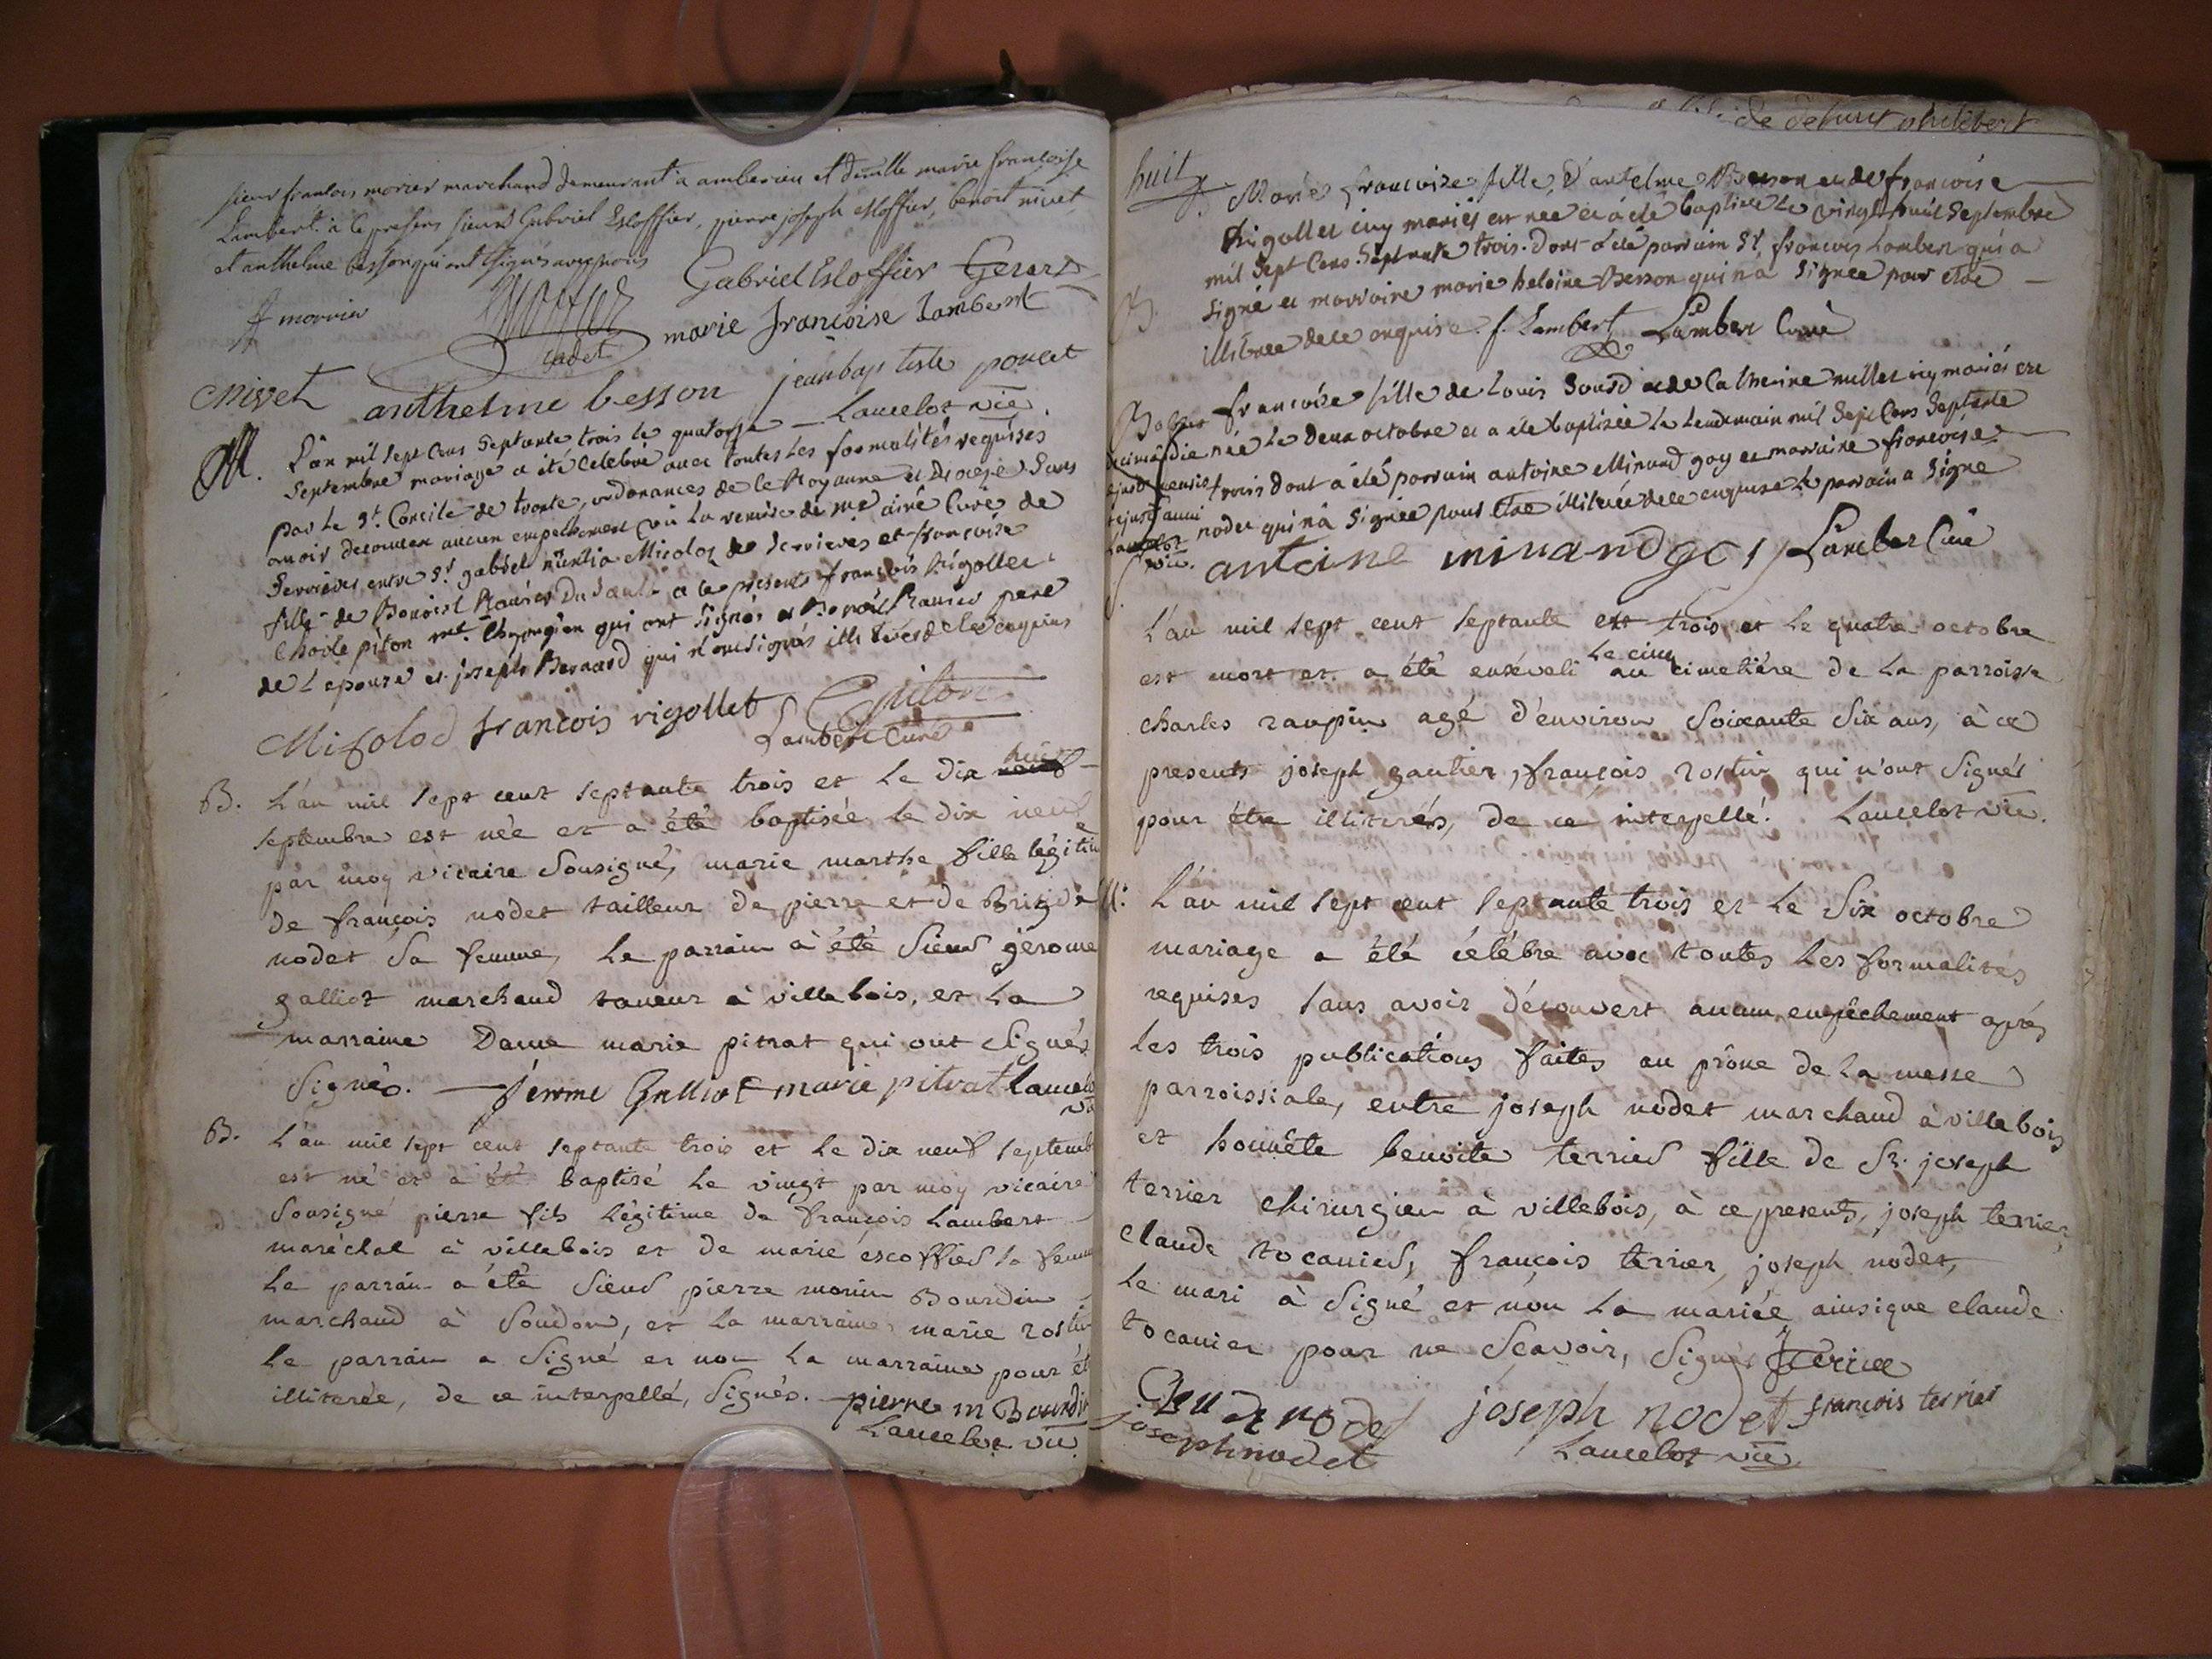 sieur francois morier marchand demeurant a amberieu et dlle marie françoise
Lambert. à ce presens sieurs Gabriel Escoffier, pierre joseph escoffier, benoit nivet
et anthelme besson qui ont signés avec nous
f morrier Gabriel Escoffier Gerard
cadet marie francoise Lambert
Nivet anthelme besson jean baptiste poncet
Lancelot vic
M. L'an mil sept Cens Septante trois le quatorze
Septembre mariage a été Celebré avec toutes Les formalités requises
par Le St. Concile de trente, ordonances de le Royaume et Diocèse Sans
avoir decouvert aucun empechement vû La remise de me aîné Curé de
Serrieres entre Sr. gabriel Mizoloz de Serrieres et françoise
fille de Benoist Ravier Du Sault a ce presents françois Rigollet
Claude piton me. Chyrurgien qui ont signés et Benoit Ravier pere
de L'epouse et joseph Bernard qui n'ont signés illiterés de ce enquis
Mizoloz francois rigollet Cpiton
Lambert Curé
B. L'an mil sept cent septante trois et le dix huit
septembre est née et a été baptisée le dix neuf
par moy vicaire Sousigné, marie marthe fille légitime
de françois nodet tailleur de pierre et de Brigide
nodet Sa femme, le parrain à été Sieur gérome
galliot marchand taneur à villebois, et la
marraine Dame marie pitrat qui ont Signés
Signés. — jerome Galliot marie pitrat Lancelot
vic
B. L'an mil sept cent septante trois et le dix neuf septemb
est né et à été baptisé le vingt par moy vicaire
Sousigné pierre fils légitime de françois Lambert
maréchal à villebois et de marie éscoffier Sa femme
le parrain a été Sieur pierre morin Bourdin
marchand à Soudon, et la marraine marie rostin
le parrain a Signé et non la marraine pour êt
illiterée, de ce interpellé, Signés. pierre m Bourdin
Lancelot vic
huit
B. Marie francoise fille d'antelme Besson et de francoise
Rigollet icy mariés est née et a été baptisée Le vingt huit Septembre
mil Sept Cens Septante trois. Dont a été parrain Sr. francois Lambert qui a
Signé et marraine marie heloine Besson qui n'a Signée pour être
illiterée de ce enquise. f. Lambert Lambert Curé
B francoise fille de Louis Sourd et de Catherine millet icy mariés est
née Le Deux octobre et a été baptisée Le Lendemain mil Sept Cens Septante
trois dont a été parrain antoine Minand goy et marraine francoise
nodet qui n'a Signée pour être illiterée de ce enquise Le parrain a Signé
antoine minand goy Lambert Curé
die
ejusd mensis
ejusd anni
Lancelot
vic.
L'an mil sept cent septante et trois et le quatre octobre
est mort et a été enséveli le cinq au cimetière de la parroisse
charles raupin agé d'environ Soixante Six ans, à ce
presents joseph gautier, françois rostin qui n'ont Signés
pour être illiterés, de ce interpellé. Lancelot vic.
M: L'an mil sept cent septante trois et le Six octobre
mariage a été célébre avec toutes les formalités
requises sans avoir découvert aucun empêchement après
les trois publications faites au prône de la messe
parroissiale, entre joseph nodet marchand à villebois
et honnête benoite terrier fille de Sr. joseph
terrier chirurgien à villebois, à ce presents, joseph terrier,
claude tocanier, françois terrier, joseph nodet,
le mari à Signé et non la mariée ainsi que claude
tocanier pour ne Scavoir, Signés Jterrier
nodet joseph nodet francois terrier
joseph nodet Lancelot vic